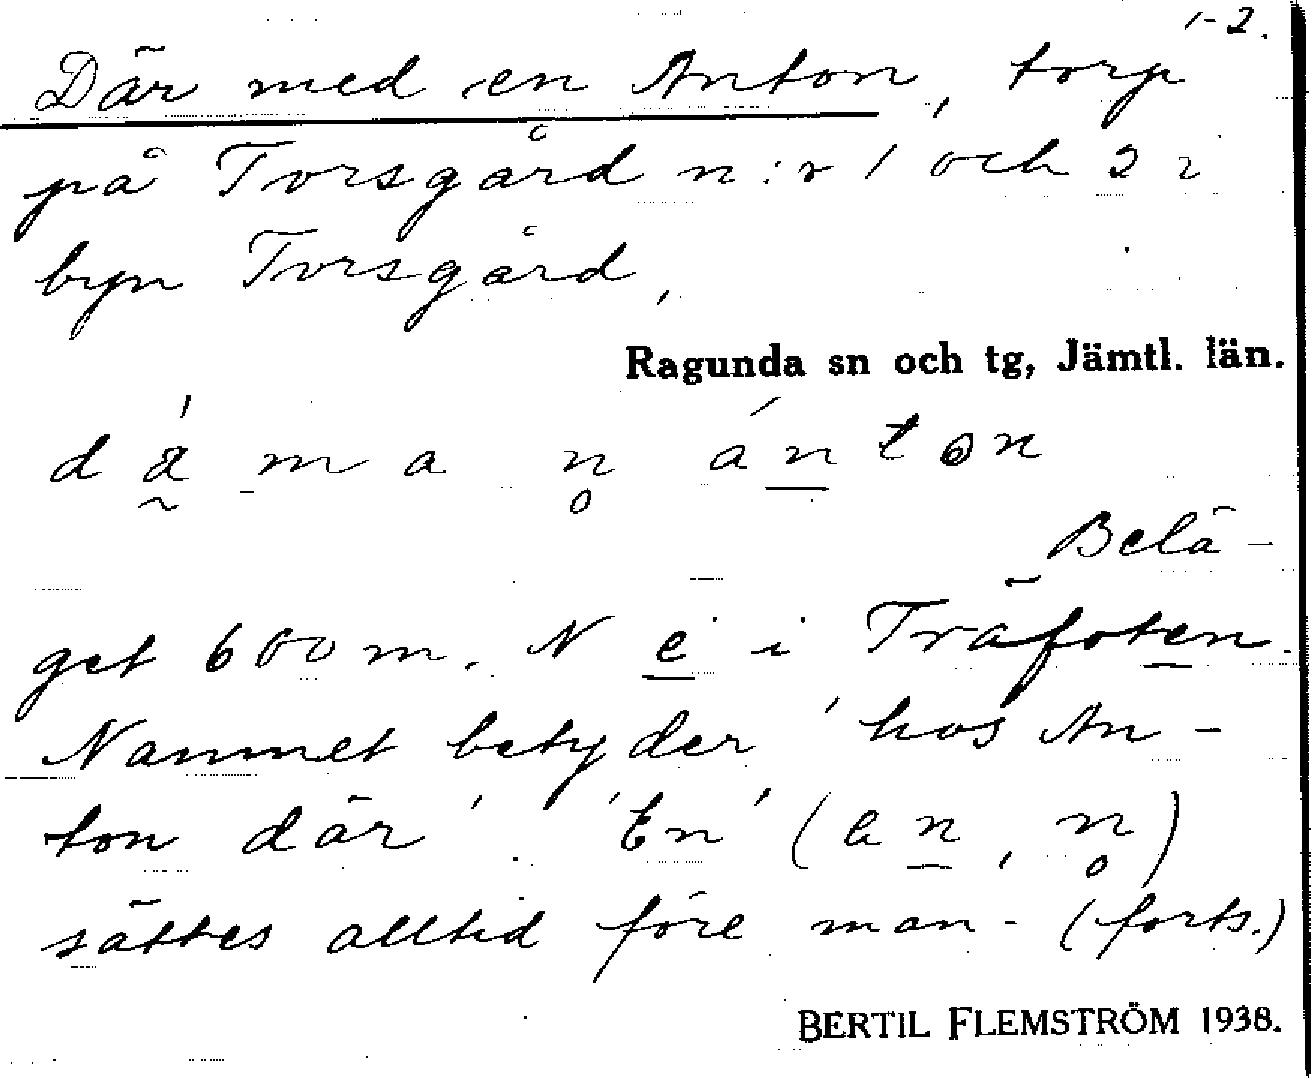 1-2.
Där med en Anton, torp
på Torsgård n:r 1 och 2 i
byn Torsgård,
Ragunda sn och tg, Jämtl. län.
dä̰́ m a n̥ án̲tɵn
Belä-
get 600 m. N e̲ i Träfoten.
Namnet betyder 'hos An-
ton där'. 'En' (en̲, n̥)
sättes alltid före man- (forts.)
BERTIL FLEMSTRÖM 1938.